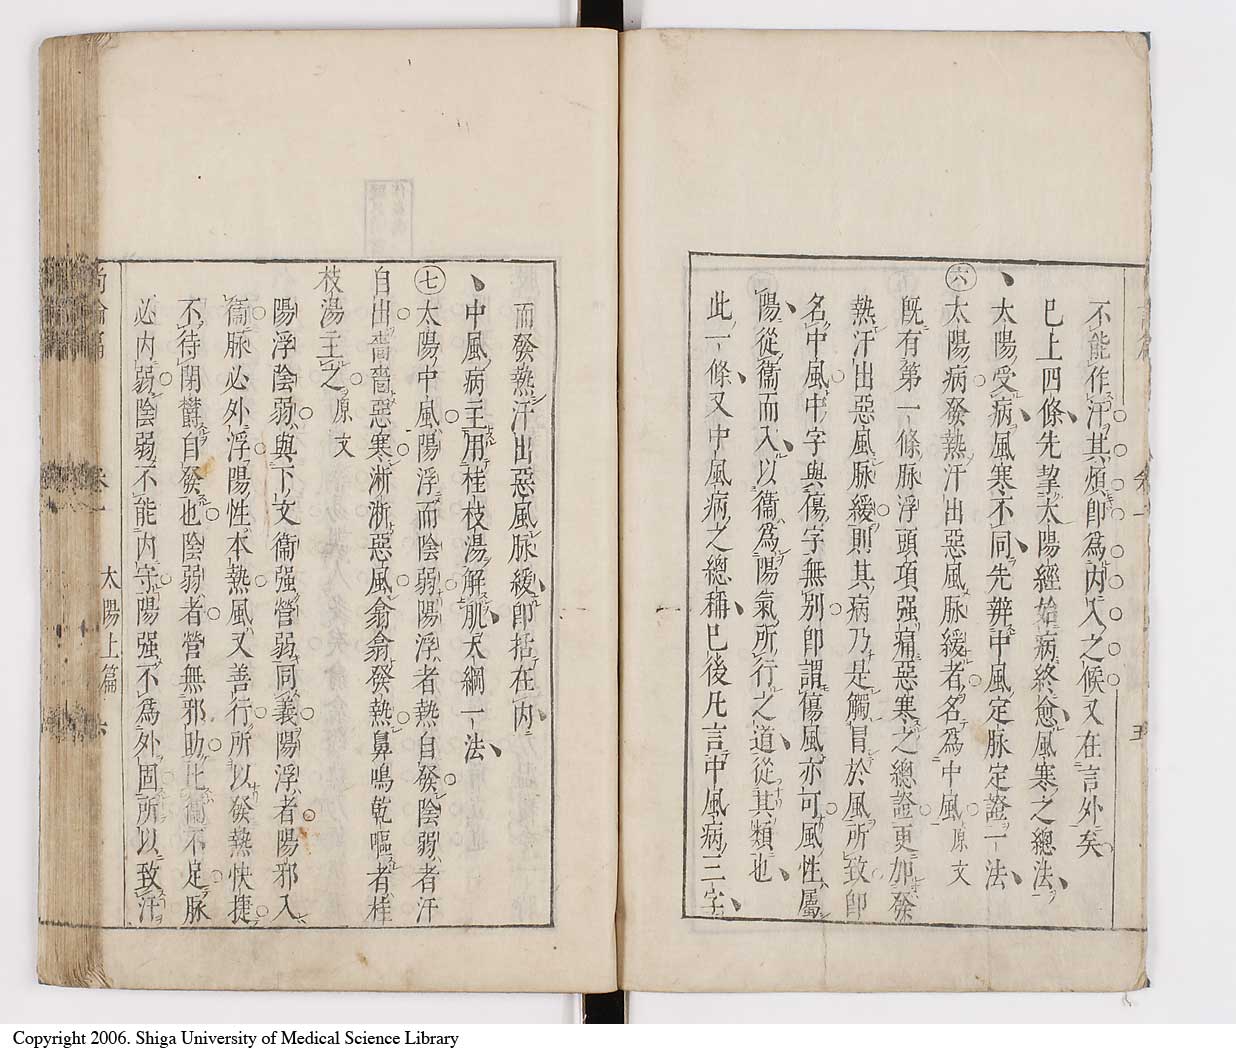 不能作汗其煩即為内入之候又在言外矣
已上四條先挈太陽經始病終愈風寒之總法
太陽受病風寒不同先辨中風定脉定證一法
㊅太陽病發熱汗出惡風脉緩者名為中風原文
既有第一條脉浮頭項强痛惡寒之總證更加發
熱汗出惡風脉緩則其病乃是觸冒於風所致即
名中風中字與傷字無别即謂傷風亦可風性屬
陽從衞而入以衞為陽氣所行之道從其類也
此一條又中風病之總稱已後凡言中風病三字
而發熱汗出惡風脉緩即括在内
中風病主用桂枝湯解肌大綱一法
㊆太陽中風陽浮而陰弱陽浮者熱自發陰弱者汗
自出嗇嗇惡寒淅淅惡風翕翕發熱鼻鳴乾嘔者桂
枝湯主之原文
陽浮陰弱與下文衞强營弱同義陽浮者陽邪入
衞脉必外浮陽性本熱風又善行所以發熱快捷
不待閉欝自發也陰弱者營無邪助比衞不足脉
必内弱陰弱不能内守陽强不為外固所以致汗
尚論篇 卷一 太陽上篇 六
Copyright 2006. Shiga University of Medical Science Library